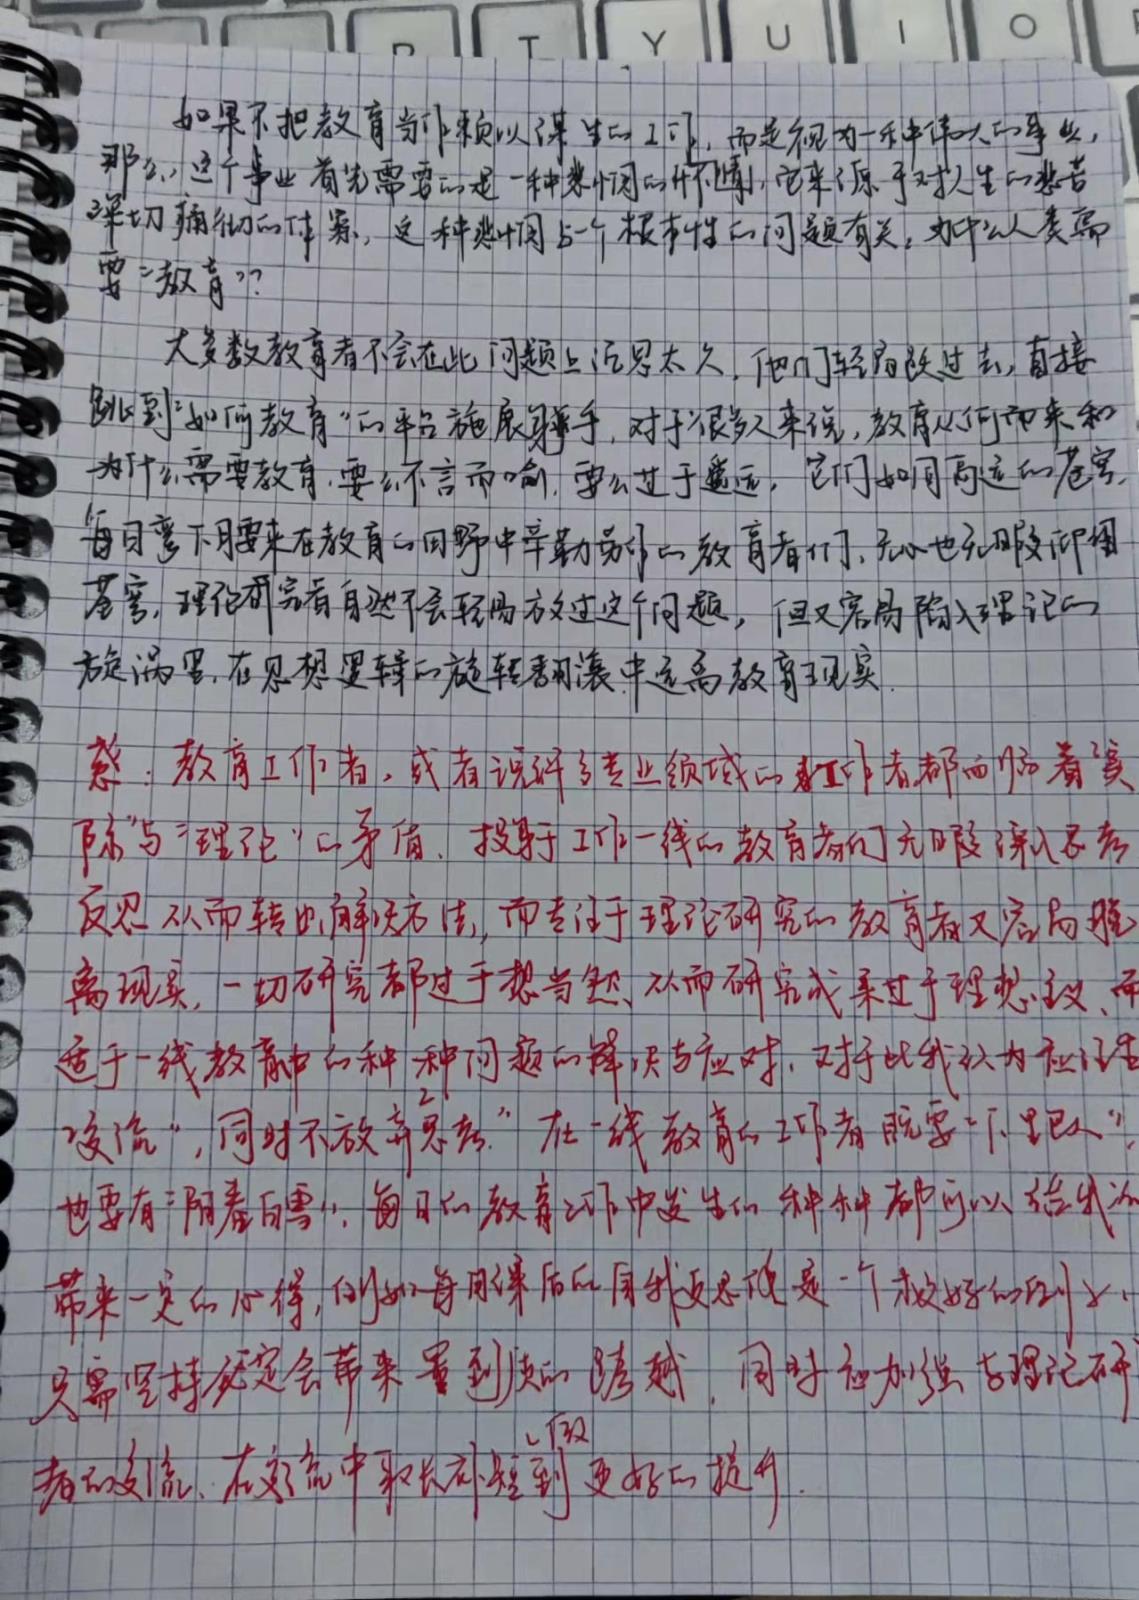 R T Y U I O
如果不把教育当作赖以谋生的工作，而是视为一种伟大的事业，
那么，这个事业首先需要的是一种悲悯的情怀，它来源于对人生的悲苦
深切痛彻的体察，这种悲悯与一个根本性的问题有关，为什么人类需
要“教育”？
大多数教育者不会在此问题上沉思太久，他们轻易跃过去，直接
跳到“如何教育”的平台施展身手，对于很多人来说，教育从何而来和
为什么需要教育，要么不言而喻，要么过于遥远，它们如同高远的苍穹，
每日弯下腰来在教育的田野中辛勤劳作的教育者们，无心也无暇仰望
苍穹，理论研究者自然不会轻易放过这个问题，但又容易陷入理论的
旋涡里，在思想逻辑的旋转翻滚中远离教育现实.
感：教育工作者，或者说许多专业领域的工作者都面临着“实
际”与“理论”的矛盾，投身于工作一线的教育者们无暇深入思考
反思从而转出解决方法，而专注于理论研究的教育者又容易脱
离现实，一切研究都过于想当然、从而研究成果过于理想主义，而
适于一线教育中的种种问题的解决与应对，对于此我认为应注重
“交流”，同时不放弃“思考”在一线教育的工作者既要“下里巴人”，
也要有“阳春白雪”，每日的教育工作中发生的种种都可以给我们
带来一定的心得，例如每日课后的自我反思便是一个较好的例子，
只需坚持定会带来量到质的跨越，同时应加强与理论研
者的交流、在交流中取长补短做到更好的提升.